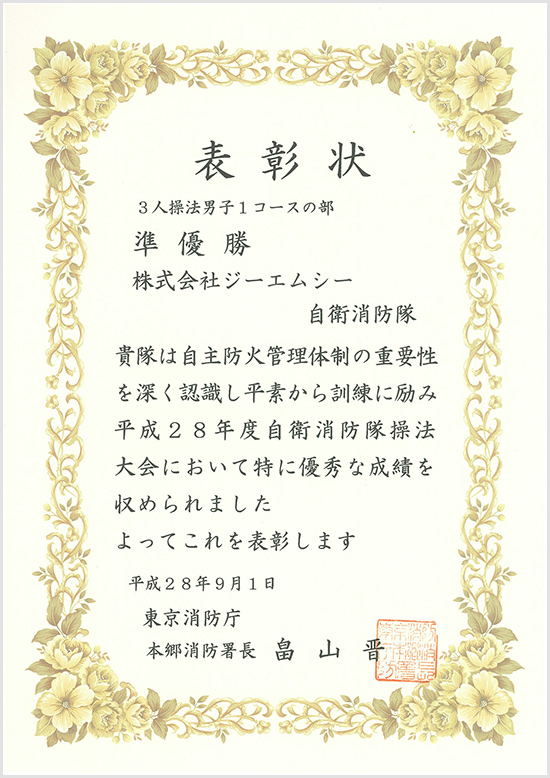 表彰状
３人操法男子１コースの部
準優勝
株式会社ジーエムシー
自衛消防隊
貴隊は自主防火管理体制の重要性
を深く認識し平素から訓練に励み
平成２８年度自衛消防隊操法
大会において特に優秀な成績を
収められました
よってこれを表彰します
平成２８年９月１日
東京消防庁
本郷消防署長 畠山晋